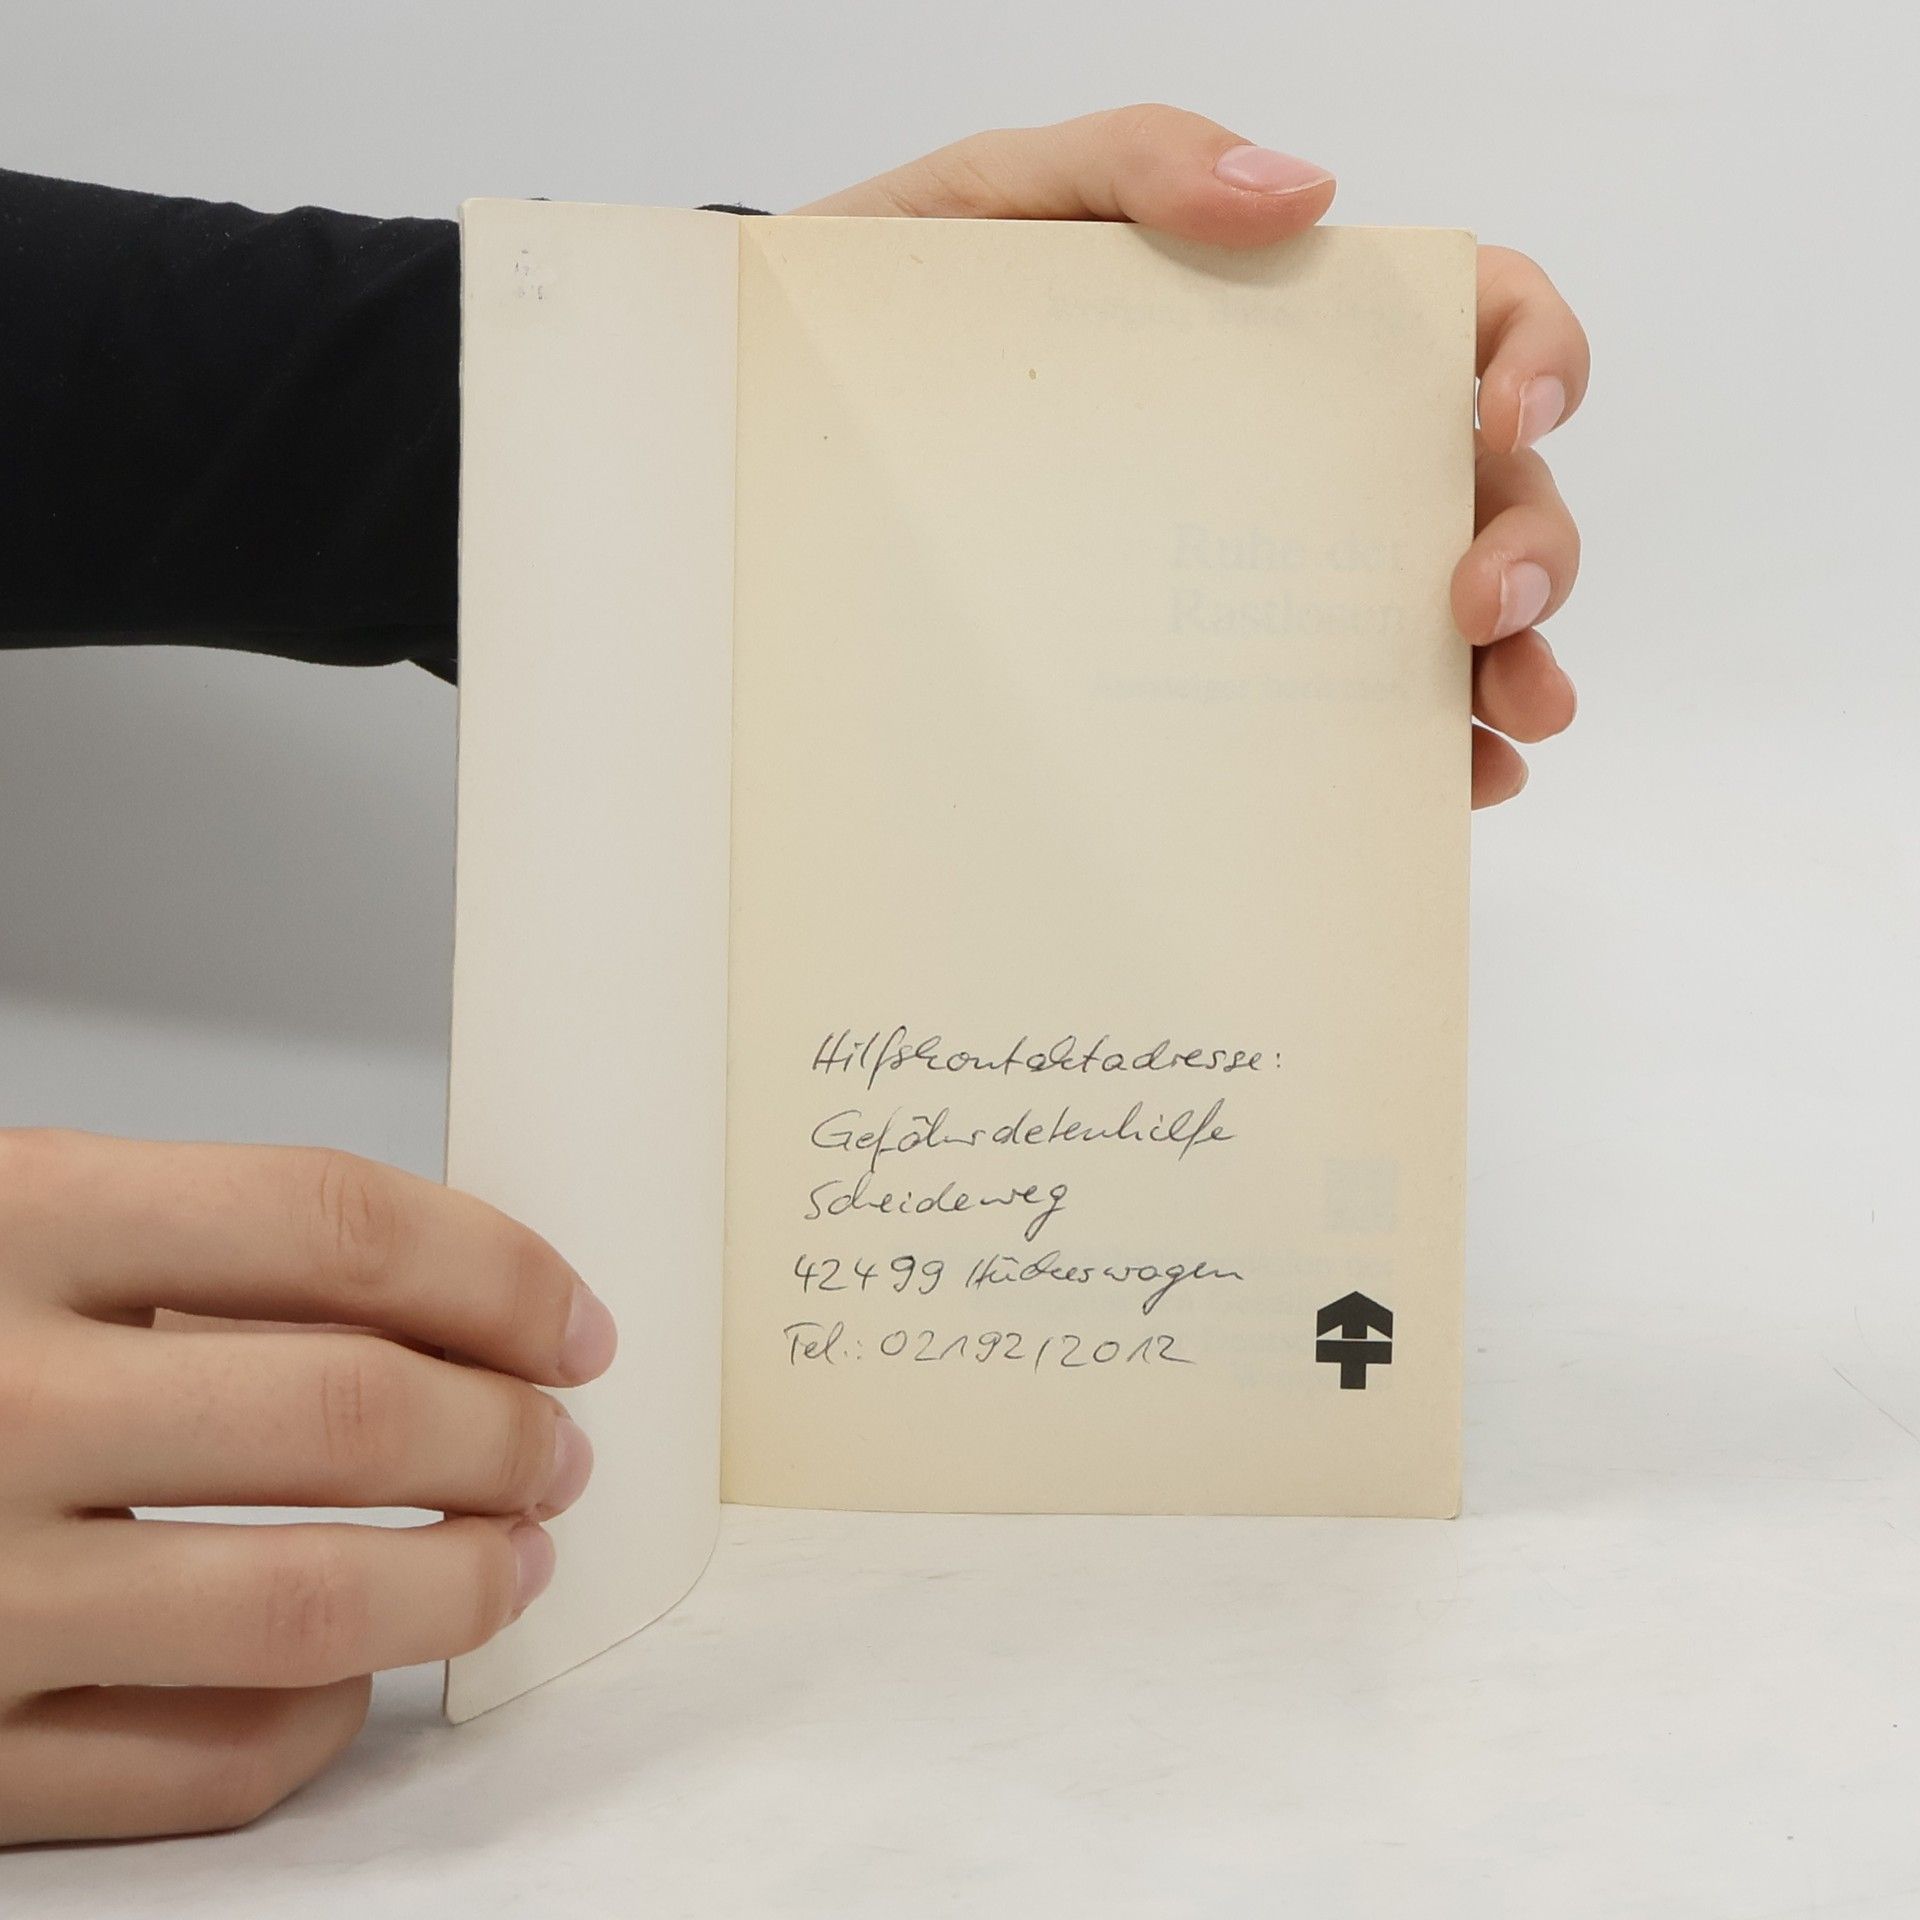 Ruhe der
Rastlosen
Hilfskontaktadresse:
Gefährdetenhilfe
Scheideweg
42499 Hückeswagen
Tel.: 02192/2012